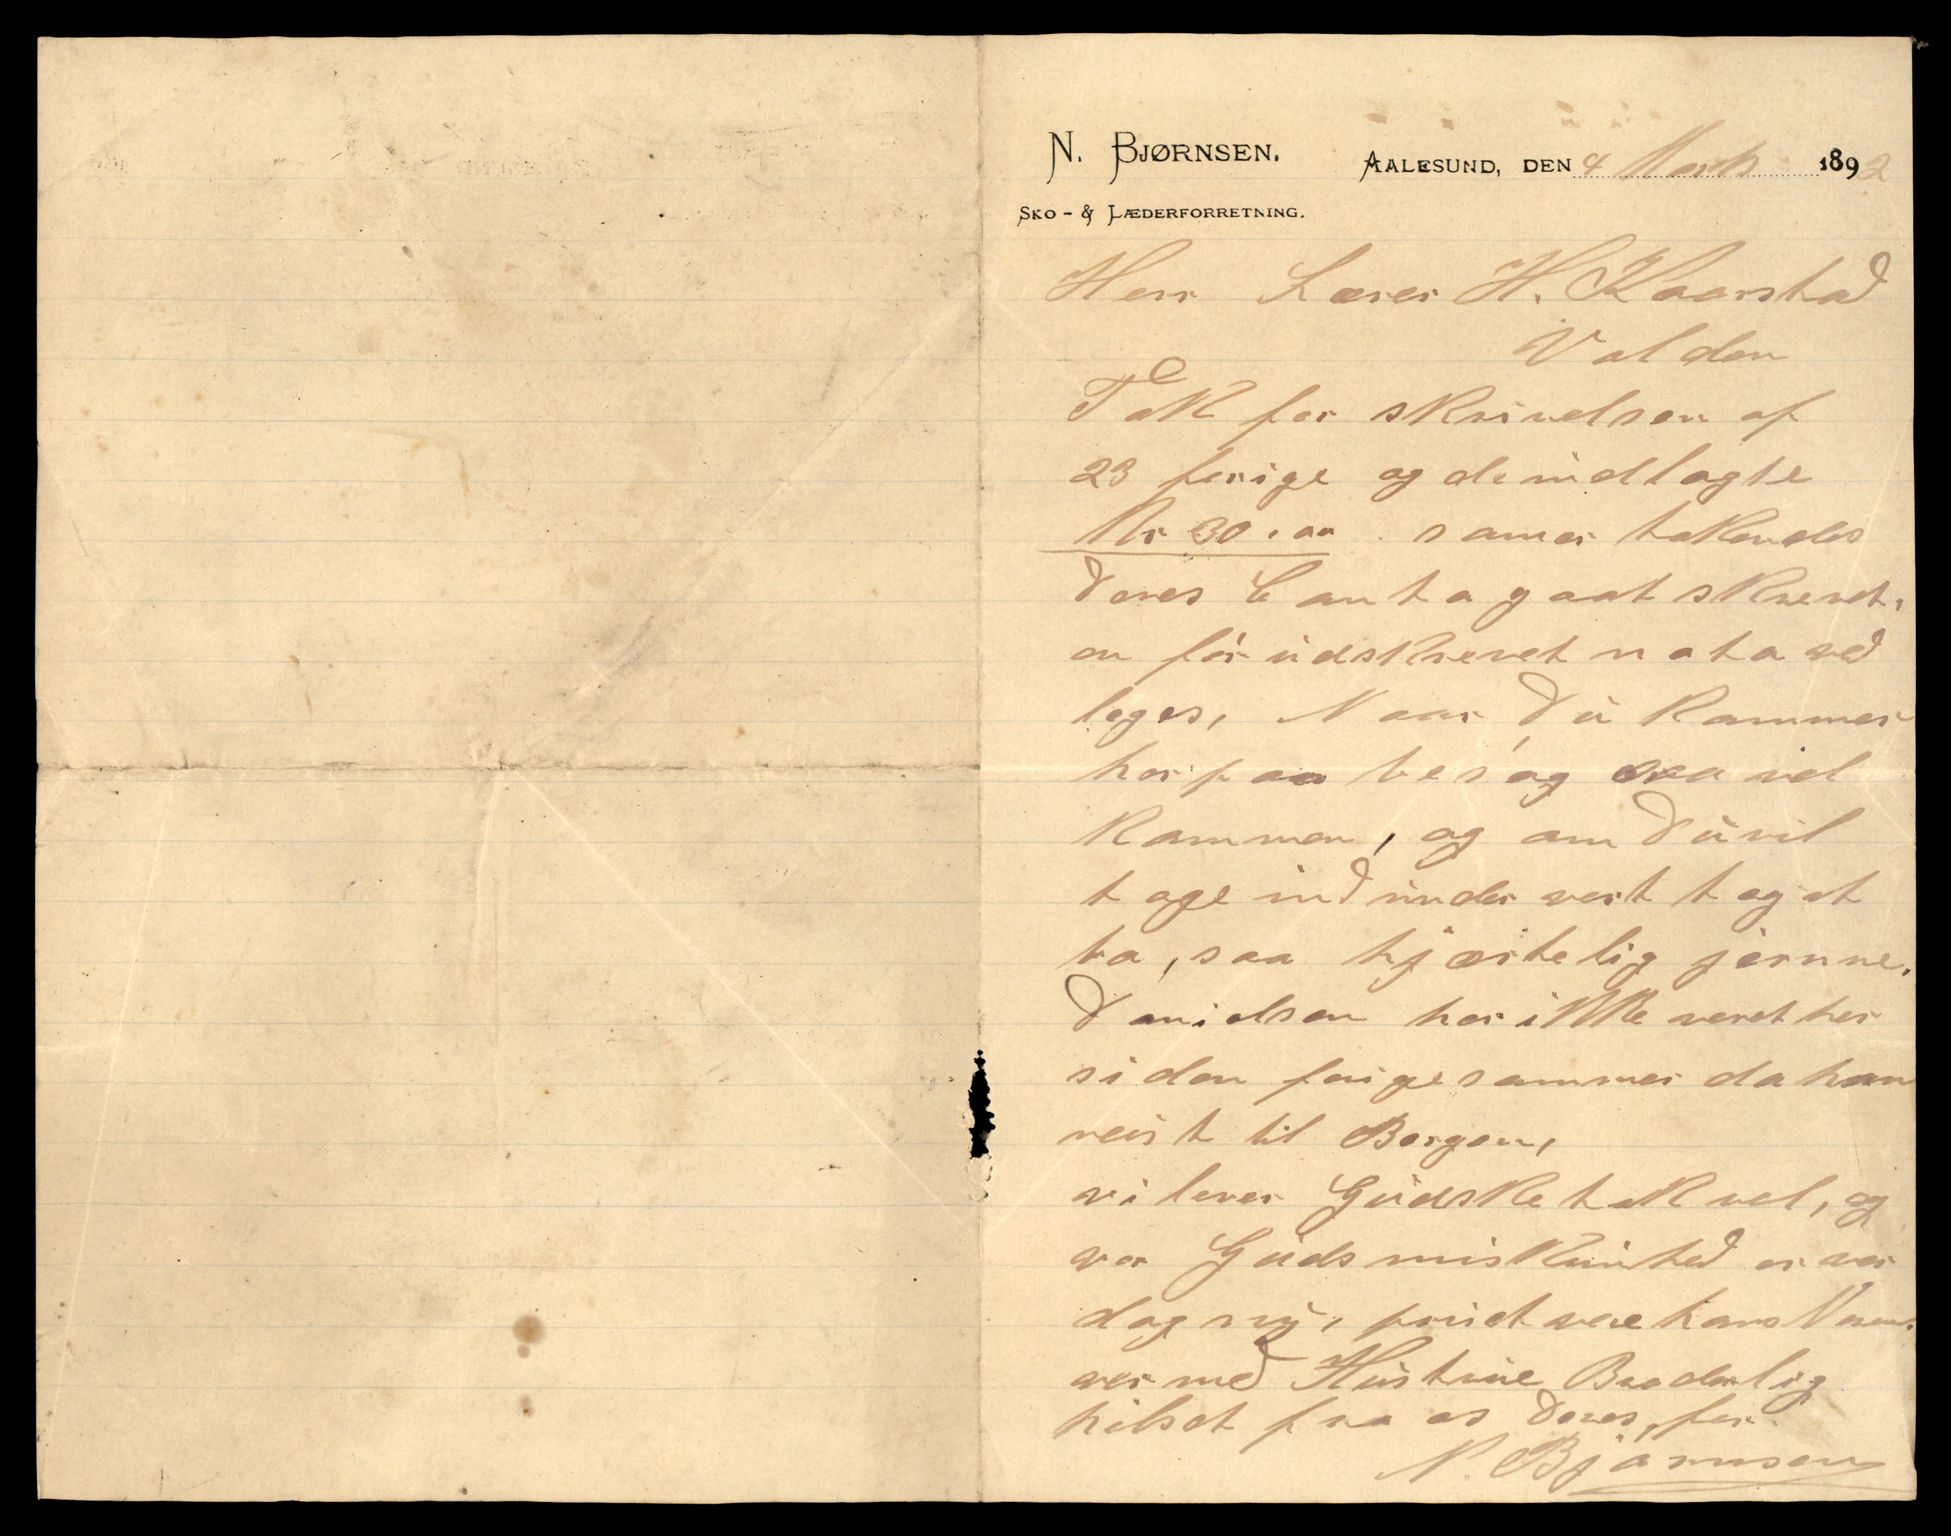 N. BJØRNSEN. AALESUND, DEN 4 Marts 1892
SKO- & LÆDERFORRETNING.
Herr Lærer H. Kaarstad
Volden
Tak for skrivelsen af
23 forige og de indlagte
Kr 30.00 som er takendes
Deres Conto gaat skrevet,
en før udskrevet nota ved
leges, Naar Du kommer
her paa besøg saa vel
kommen, og om Du vil
tage ind under vort tag at
bo, saa hjærtelig jerne,
Danielsen har ikke veret her
siden forige sommer da han
reist til Bergen,
vi lever Gudske tak vel, og
vor Guds miskunhed er vor
dag ny, prist vere hans Navn.
ver med Hustrue Broderlig
hilset fra os Deres, for
N. Bjørnsen